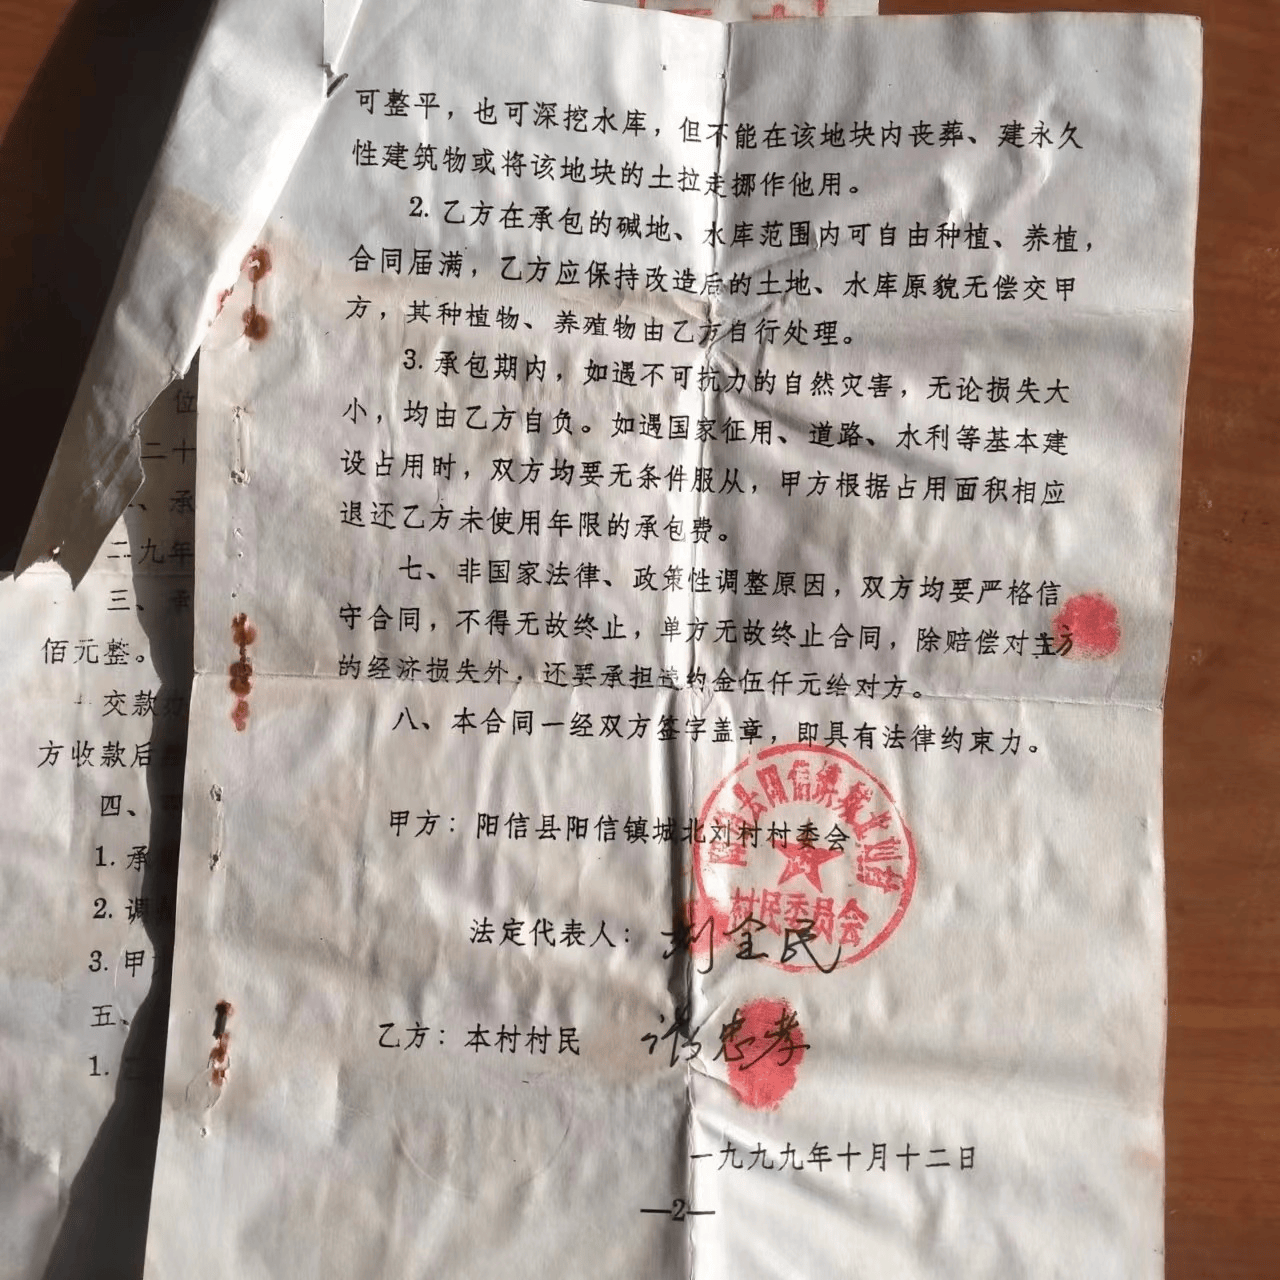 可整平，也可深挖水库，但不能在该地块内丧葬、建永久
性建筑物或将该地块的土拉走挪作他用。
2.乙方在承包的碱地、水库范围内可自由种植、养植，
合同届满，乙方应保持改造后的土地、水库原貌无偿交甲
方，其种植物、养殖物由乙方自行处理。
3.承包期内，如遇不可抗力的自然灾害，无论损失大
小，均由乙方自负。如遇国家征用、道路、水利等基本建
设占用时，双方均要无条件服从，甲方根据占用面积相应
退还乙方未使用年限的承包费。
七、非国家法律、政策性调整原因，双方均要严格信
守合同，不得无故终止，单方无故终止合同，除赔偿对方
的经济损失外，还要承担违约金伍仟元给对方。
八、本合同一经双方签字盖章，即具有法律约束力。
甲方：阳信县阳信镇城北刘村村委会
村民委员会
法定代表人：刘全民
乙方：本村村民 忠孝
一九九九年十月十二日
—2—
位
二十
、承
二九年
三、承
佰元整。
交款
方收款后
四、
1.承
2.调
3.甲方
五、
1.